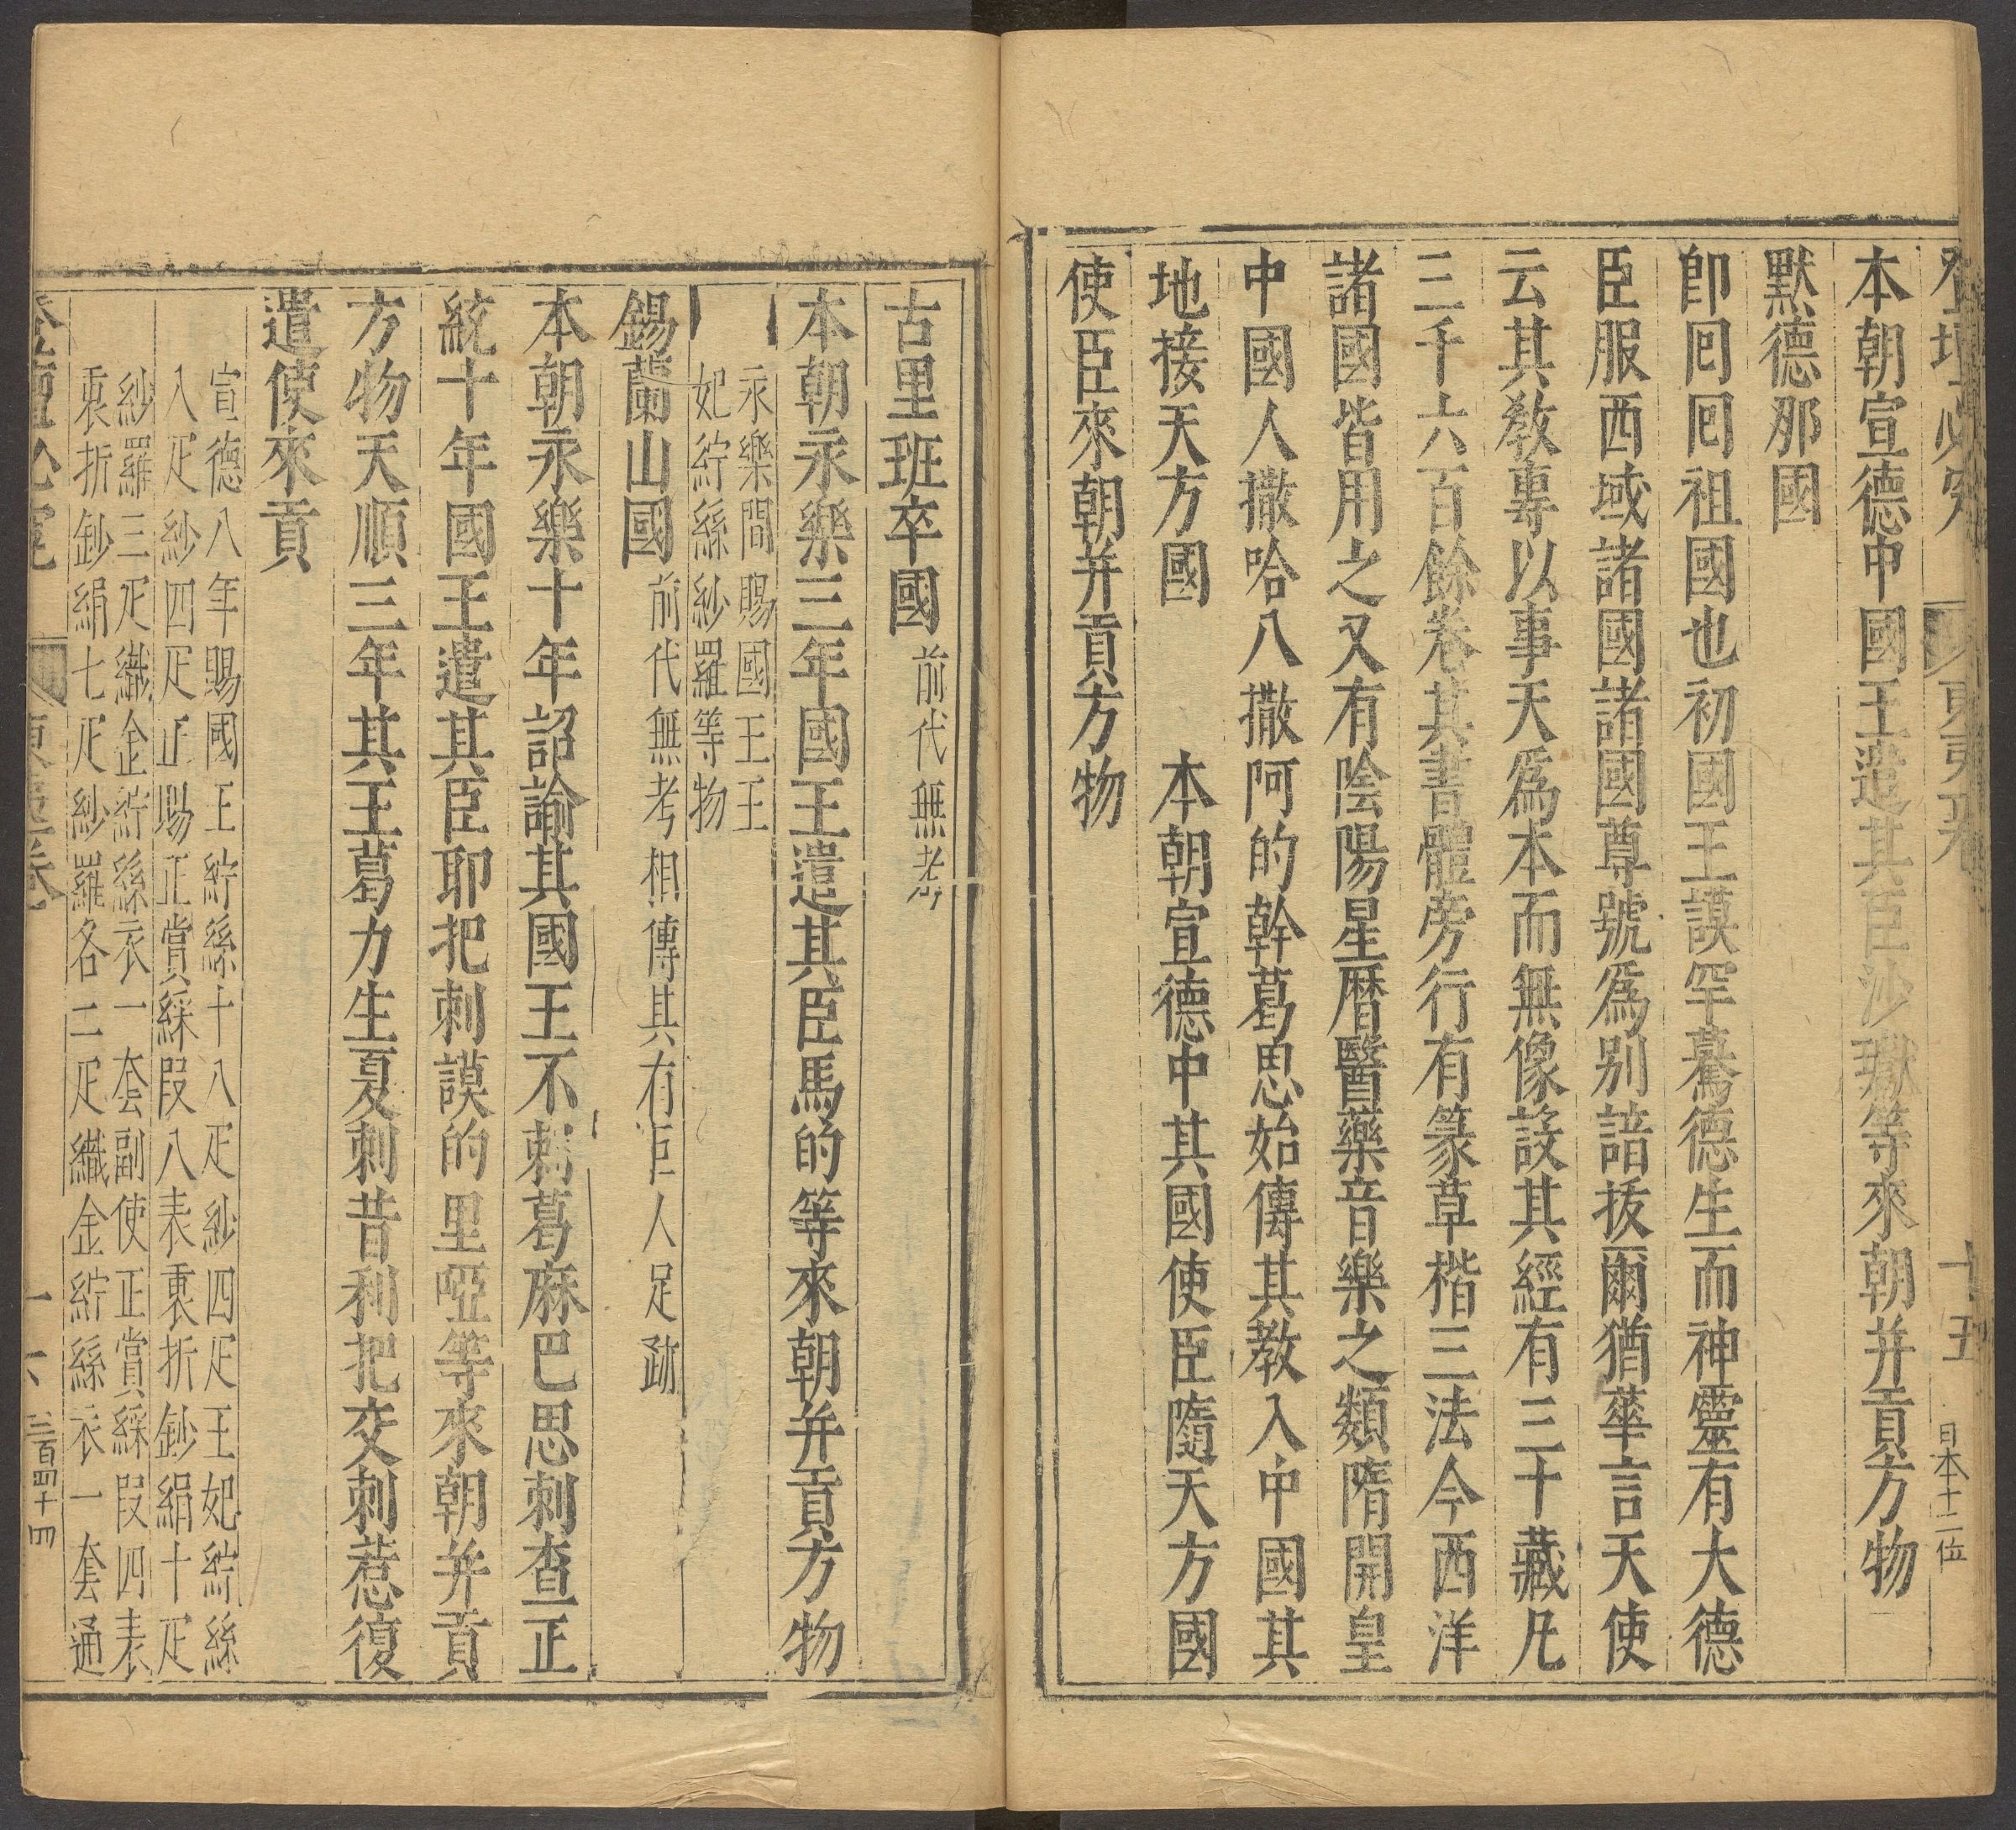 十五
日本十二位
本朝宣德中國王遣其臣沙瓛等來朝并貢方物
默德那國
卽囘囘祖國也初國王謨罕驀德生而神靈有大德
臣服西域諸國諸國尊號爲别諳拔爾猶華言天使
云其敎專以事天爲本而無像設其經有三十藏凡
三千六百餘卷其書體旁行有篆草楷三法今西洋
諸國皆用之又有陰陽星曆醫藥音樂之類隋開皇
中國人撒哈八撒阿的幹葛思始傳其教入中國其
地接天方國 本朝宣德中其國使臣隨天方國
使臣來朝并貢方物
古里班卒國前代無考
本朝永樂三年國王遣其臣馬的等來朝并貢方物
永樂間賜國王王
妃紵絲紗羅等物
錫蘭山國前代無考相傳其有巨人足跡
本朝永樂十年詔諭其國王不剌葛麻巴思剌查正
統十年國王遣其臣耶把剌謨的里啞等來朝并貢
方物天順三年其王葛力生夏剌昔利把交剌惹復
遣使來貢
宣德八年賜國王紵絲十八疋紗四疋王妃紵絲
八疋紗四疋正賜正賞綵叚八表裏折鈔絹十疋
紗羅三疋織金紵絲衣一套副使正賞綵叚四表
裏折鈔絹七疋紗羅各二疋織金紵絲衣一套通
三百四十四